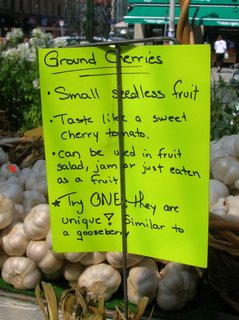 Ground Cherries
• Small seedless fruit
• Taste like a sweet
cherry tomato.
• can be used in fruit
salad, jam or just eaten
as a fruit
★ Try ONE, they are
unique! Similar to
a gooseberry